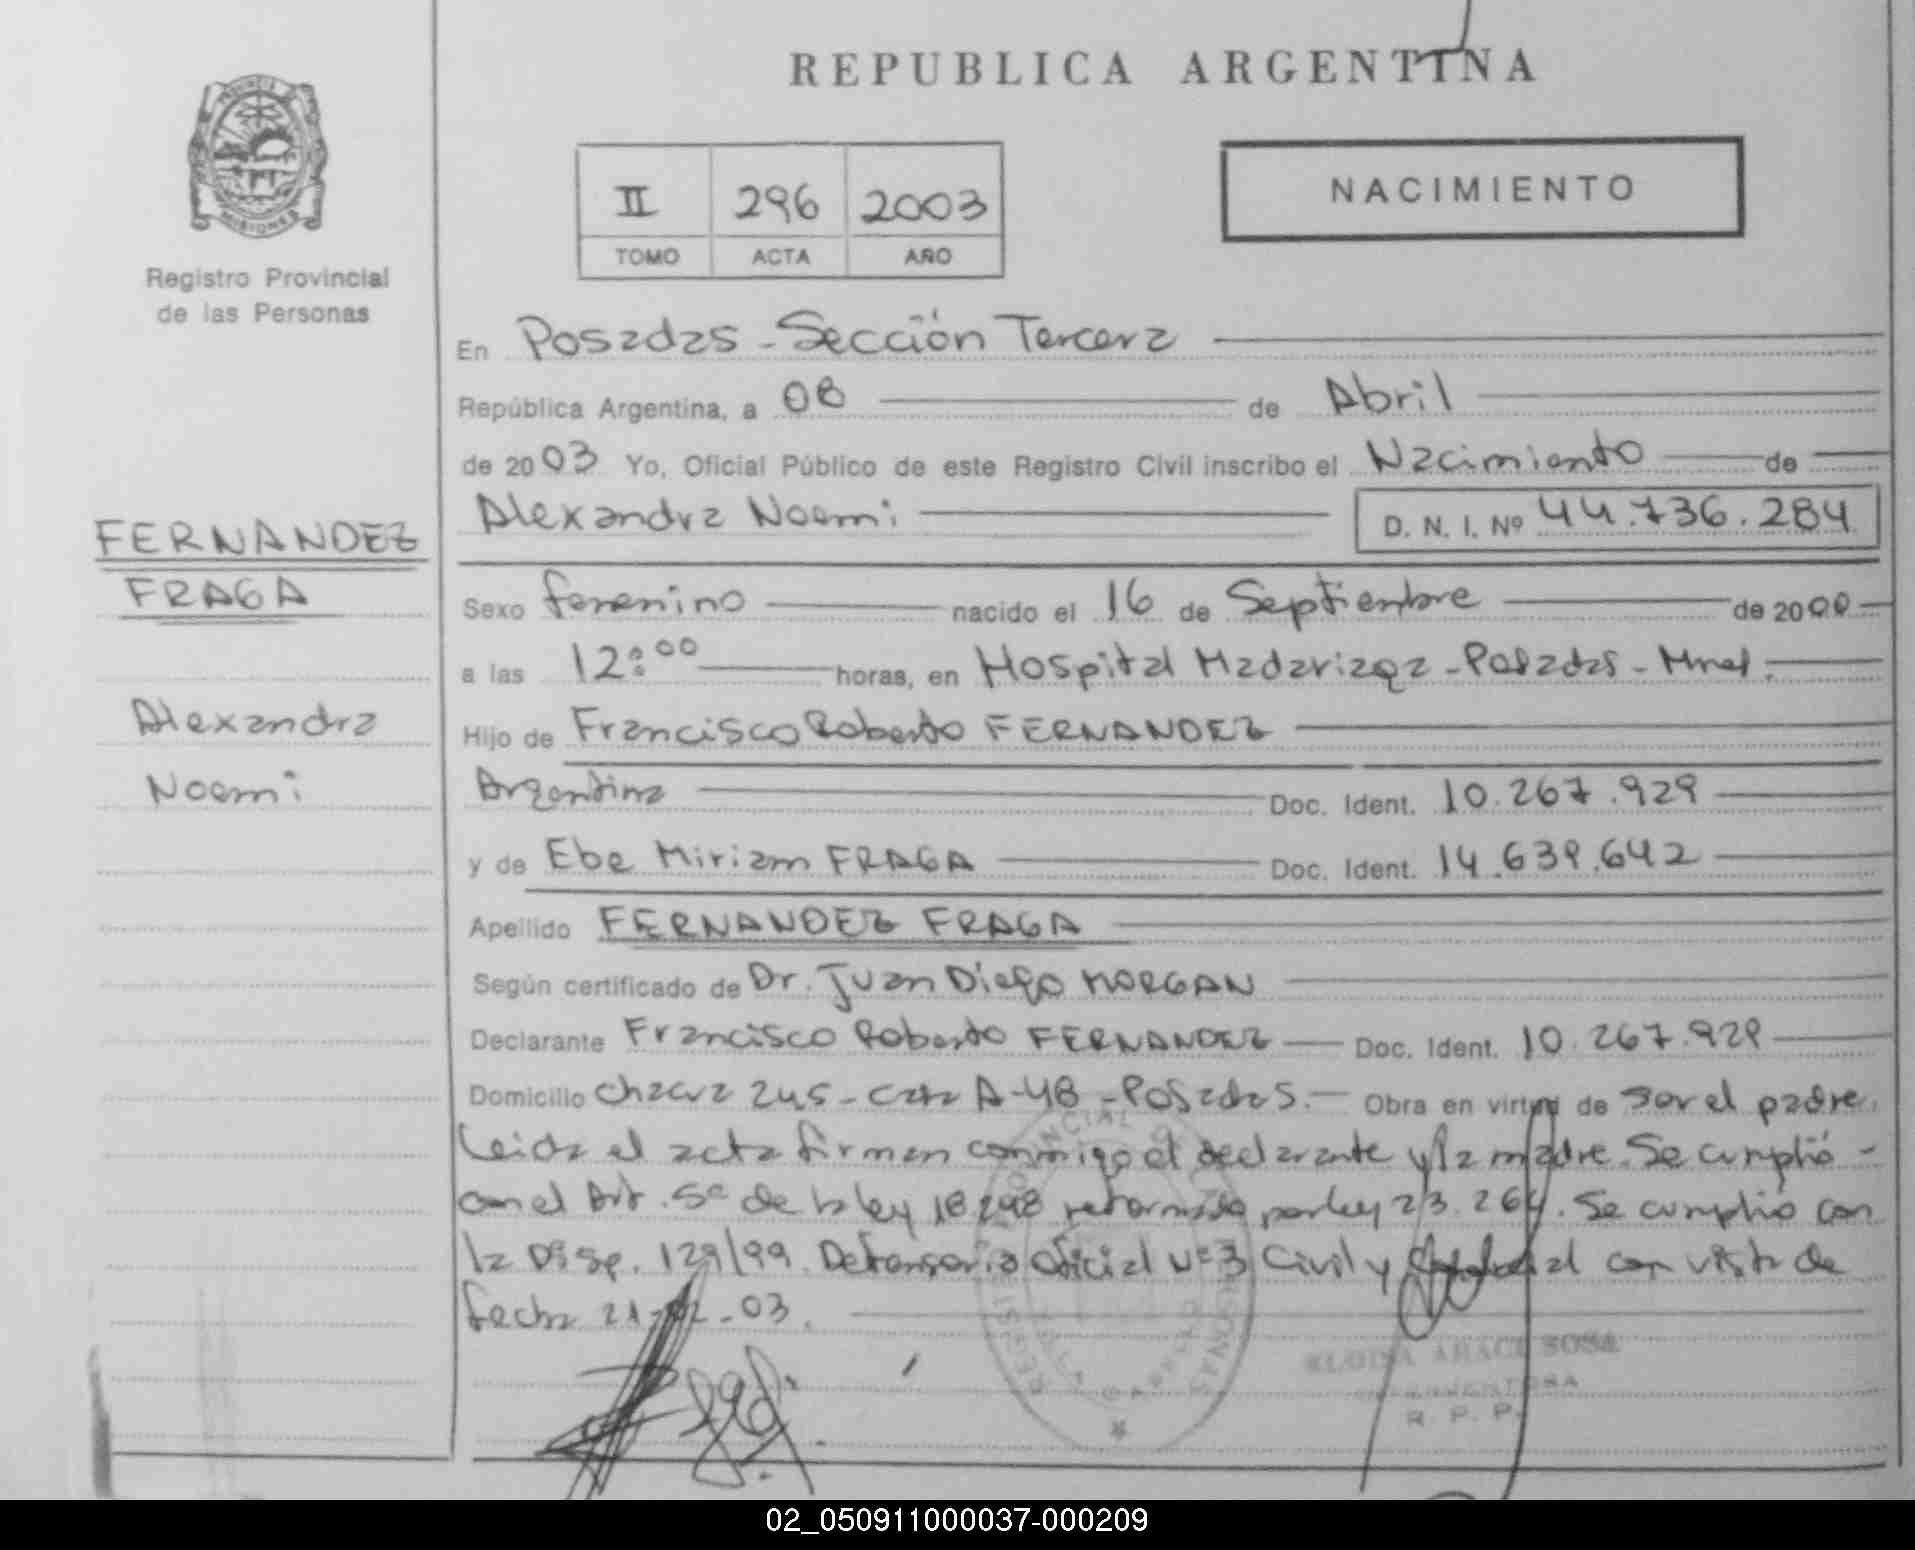 REPUBLICA ARGENTINA
PROVINCIA DE MISIONES
Registro Provincial
de las Personas
II 296 2003
TOMO ACTA AÑO
NACIMIENTO
En Posadas - Sección Tercera
República Argentina, a 08 de Abril
de 2003 Yo, Oficial Público de este Registro Civil inscribo el Nacimiento de
Alexandra Noemi D. N. I. Nº 44.736.284
FERNANDEZ
FRAGA
Alexandra
Noemi
Sexo femenino nacido el 16 de Septiembre de 2000
a las 12:00 horas, en Hospital Madariaga - Posadas - Mnes.
Hijo de Francisco Roberto FERNANDEZ
Argentina Doc. Ident. 10.267.929
y de Ebe Miriam FRAGA Doc. Ident. 14.639.642
Apellido FERNANDEZ FRAGA
Según certificado de Dr. Juan Diego MORGAN
Declarante Francisco Roberto FERNANDEZ Doc. Ident. 10.267.929
Domicilio Chacra 245 - Casa A-48 - Posadas. Obra en virtud de ser el padre.
Leida el acta firman conmigo el declarante y la madre. Se cumplió
con el Art. 5º de la ley 18248 reformada por ley 23.264. Se cumplió con
la Disp. 129/99. Defensoria Oficial Nº 3 Civil y con vista de
fecha 21-02-03.
REGISTRO PROVINCIAL DE LAS PERSONAS
ELOISA ARACI SOSA
R. P. P.
02_050911000037-000209